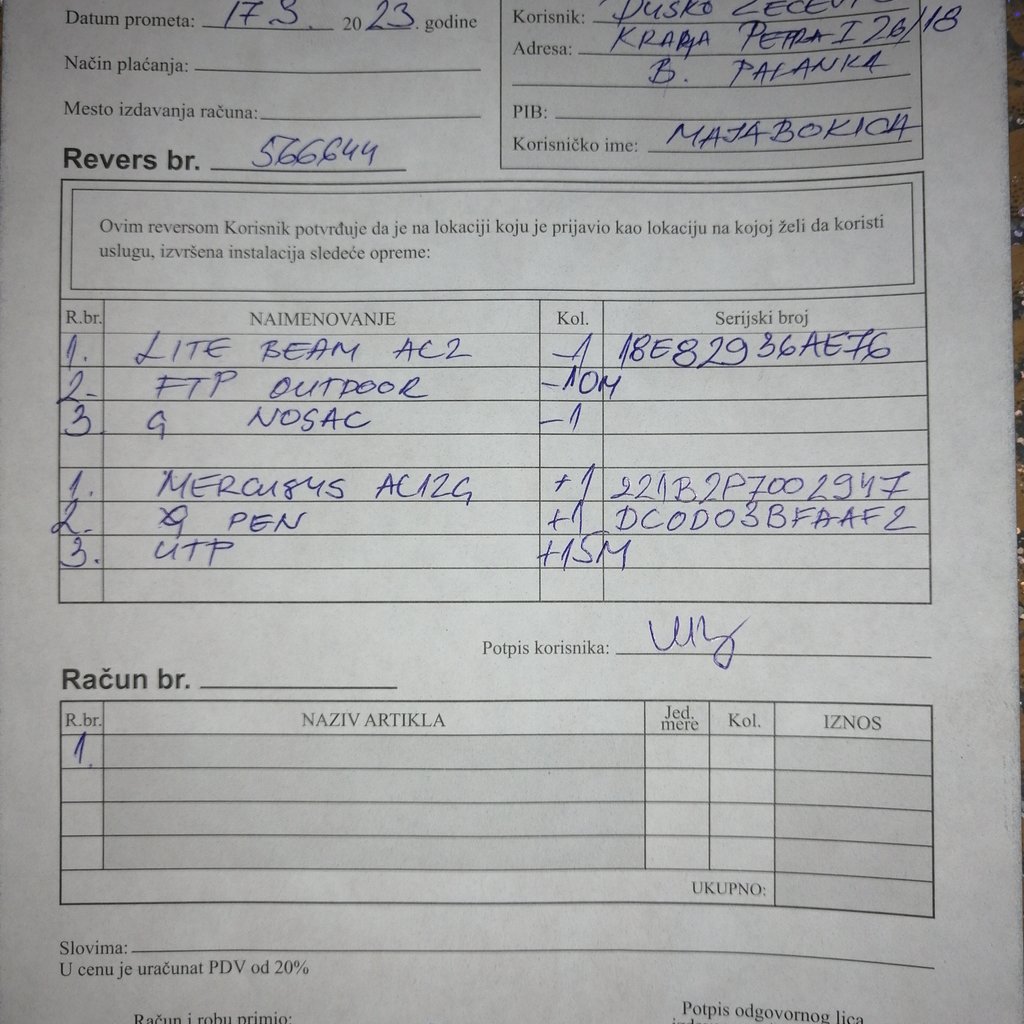 Datum prometa: 17 3. 2023. godine
Korisnik: DUŠKO
Adresa: KRALJA PETRA I 26/18
B. PALANKA
Način plaćanja:
Mesto izdavanja računa:
PIB:
Korisničko ime: MAJABOKICA
Revers br. 566644
Ovim reversom Korisnik potvrđuje da je na lokaciji koju je prijavio kao lokaciju na kojoj želi da koristi
uslugu, izvršena instalacija sledeće opreme:
R.br. NAIMENOVANJE Kol. Serijski broj
1. LITE BEAM AC2 -1 18E82936AE76
2- FTP OUTDOOR -10M
3. G NOSAC -1
1. MERCUSYS AC12G +1 221B2P7002947
2. G PEN +1 DC0D03BFAAF2
3. UTP +15M
Potpis korisnika:
Račun br.
R.br. NAZIV ARTIKLA Jed. mere Kol. IZNOS
1.
UKUPNO:
Slovima:
U cenu je uračunat PDV od 20%
Račun i robu primio:
Potpis odgovornog lica